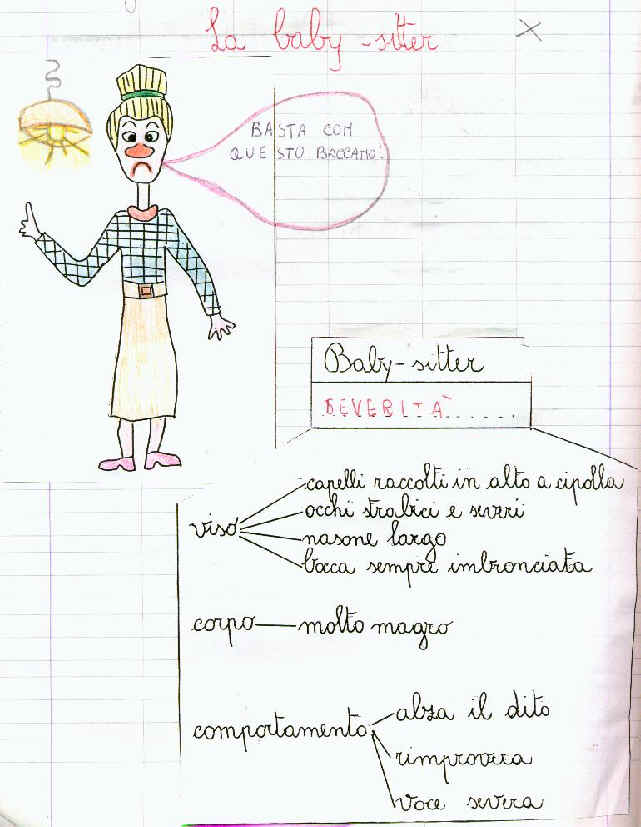 La baby-sitter
BASTA CON
QUESTO BACCANO!
Baby-sitter
SEVERITÀ......
viso
capelli raccolti in alto a cipolla
occhi strabici e severi
nasone largo
bocca sempre imbronciata
corpo molto magro
comportamento
alza il dito
rimprovera
voce severa